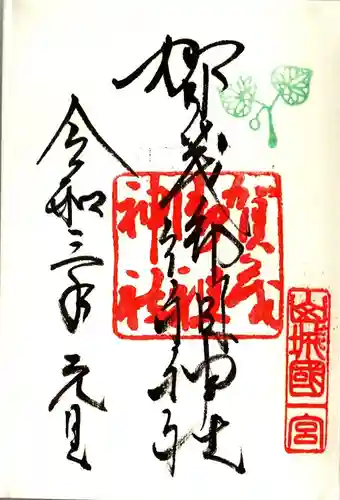 山城國一宮
賀茂御祖神社
賀茂
御祖
神社
令和三年 元旦